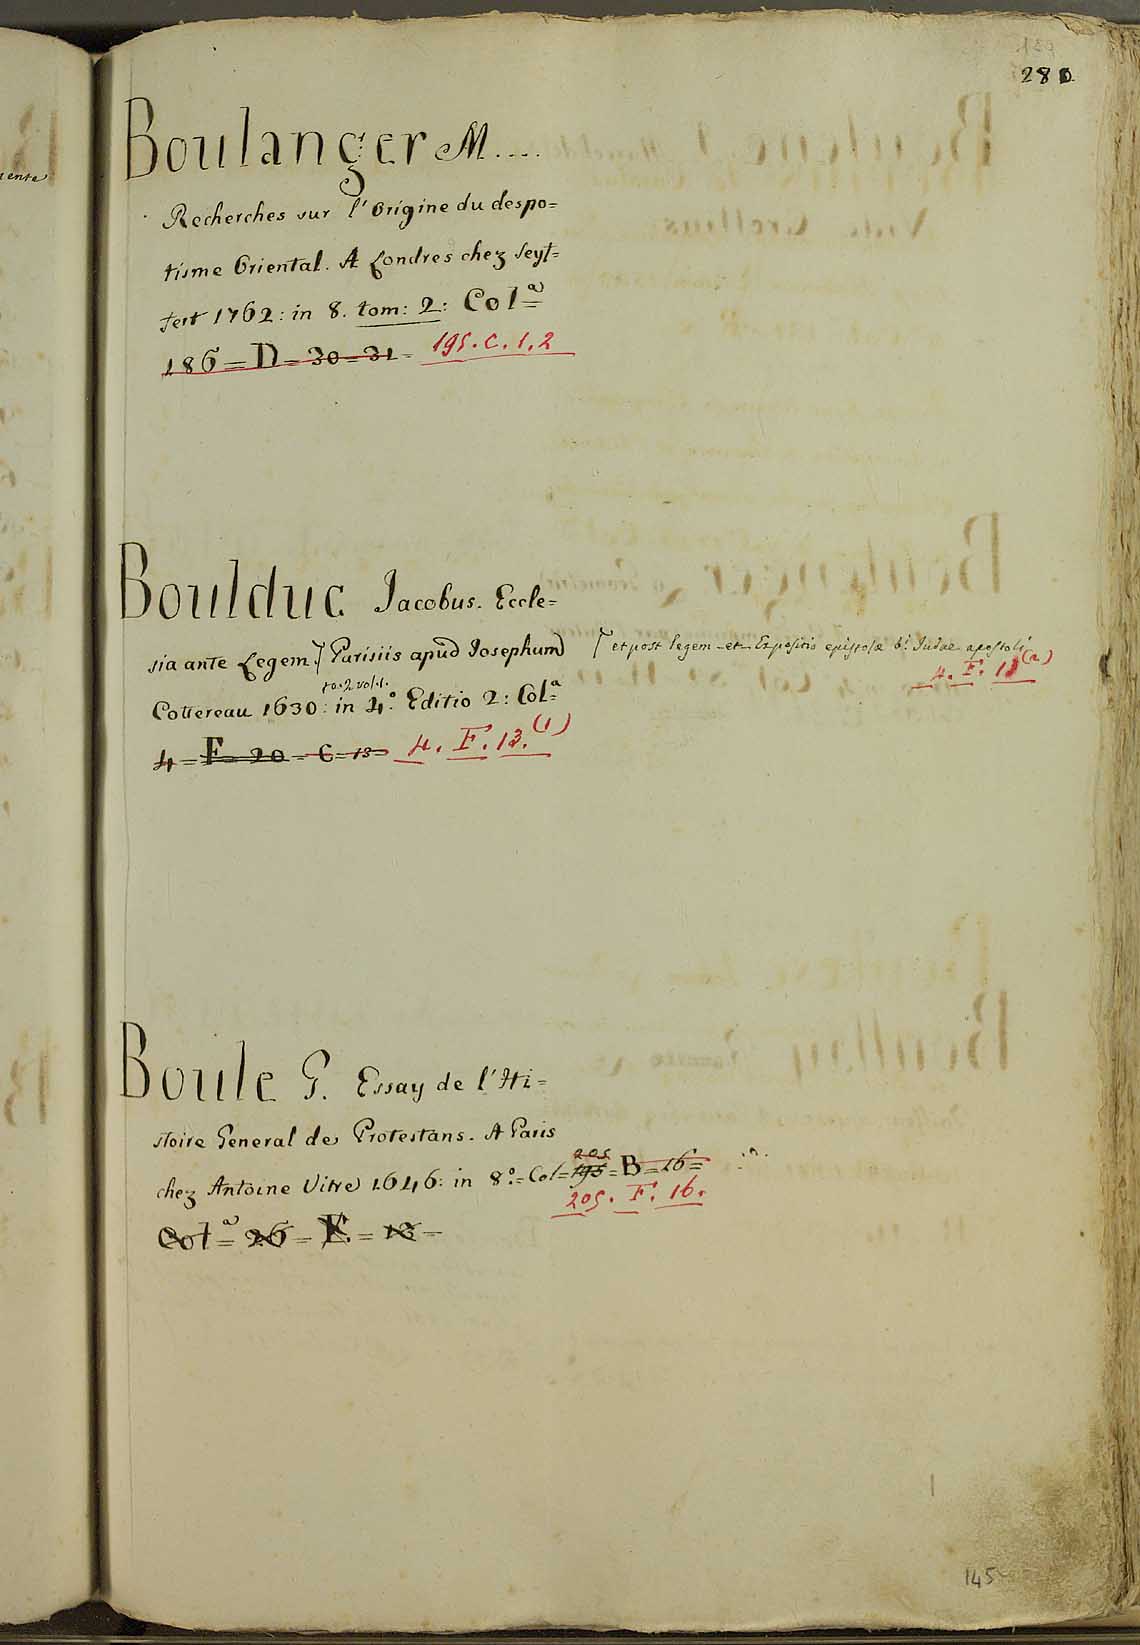 139
280
Boulanger M....
Recherches sur l'Origine du despo=
tisme Oriental. A Londres chez Seyf=
fert 1762: in 8. tom: 2: Col.a
186=D=30=31= 195.C.1.2
Boulduc Jacobus. Eccle=
sia ante Legem.⌉ Parisiis apud Josephum ⌈ et post legem et Expositio epistolæ b.i Judae apostoli
4.F.13(2)
to. 2 vol.
Cottereau 1630: in 4.o Editio 2: Col.a
4=F=20=C=13= 4.F.13.(1)
Boule G. Essay de l'Hi=
stoire General de Protestans. A Paris
205
chez Antoine Vitre 1646: in 8.o=Col=195=B=16=
205.F.16.
Col.a=26=E=13=
145